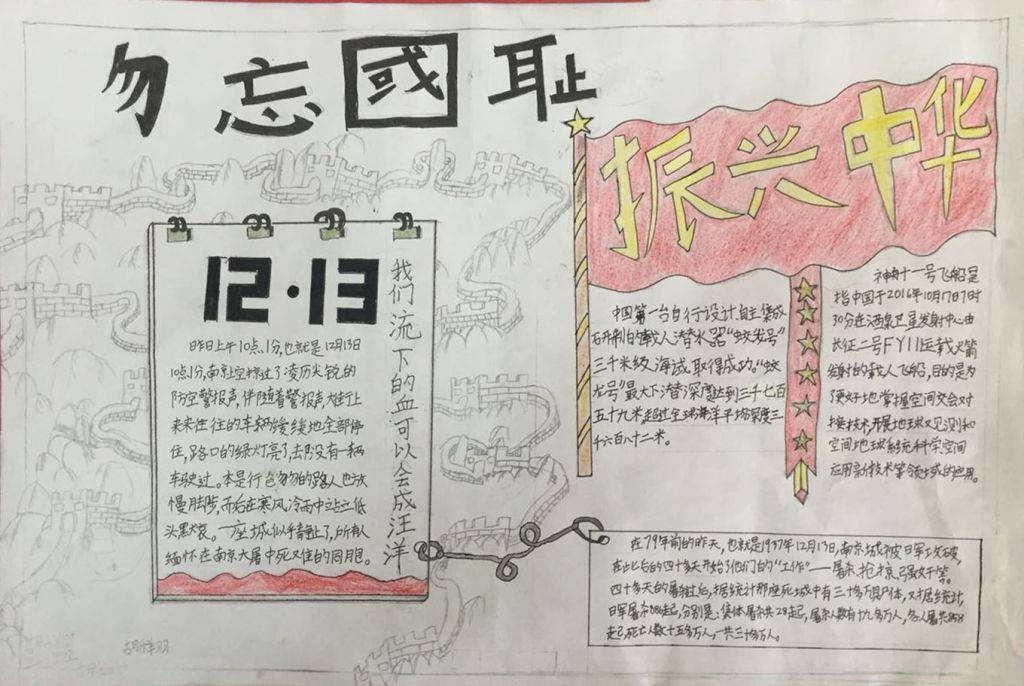 勿忘國耻
振兴中华
12·13
我们流下的血可以会成汪洋
昨日上午10点1分,也就是12月13日
10点1分,南京上空掠过了凌厉尖锐的
防空警报声,伴随着警报声大街上
来来往往的车辆缓缓地全部停
住,路口的绿灯亮了,去却没有一辆
车驶过。本是行色匆匆的路人也放
慢脚步,而后在寒风冷雨中站立低
头默哀。一座城似乎静止了,所有人
缅怀在南京大屠中死又住的同胞。
中国第一台自行设计自主集成
研制的载人潜水器“蛟龙号”
三千米级海试取得成功。“蛟
龙号”最大下潜深度达到三千七百
五十九米,超过全球海洋平均深度三
千六百八十二米。
神舟十一号飞船是
指中国于2016年10月17日7时
30分在酒泉卫星发射中心由
长征二号FY11运载火箭
发射的载人飞船,目的是为
更好地掌握空间交会对
接技术,开展地球观测和
空间地球系统科学空间
应用新技术等领域的应用。
在79年前的昨天,也就是1937年12月13日,南京城被日军攻破,
在此后的四十多天开始了他们的“工作”——屠杀,抢掠,强奸等。
四十多天的屠杀过后,据统计那座死城中有三十多万具尸体,又据统计,
日军屠杀886起,分别是:集体屠杀共28起,屠杀人数有十九多万人,
起,死亡人数十五多万人,一共三十多万人。